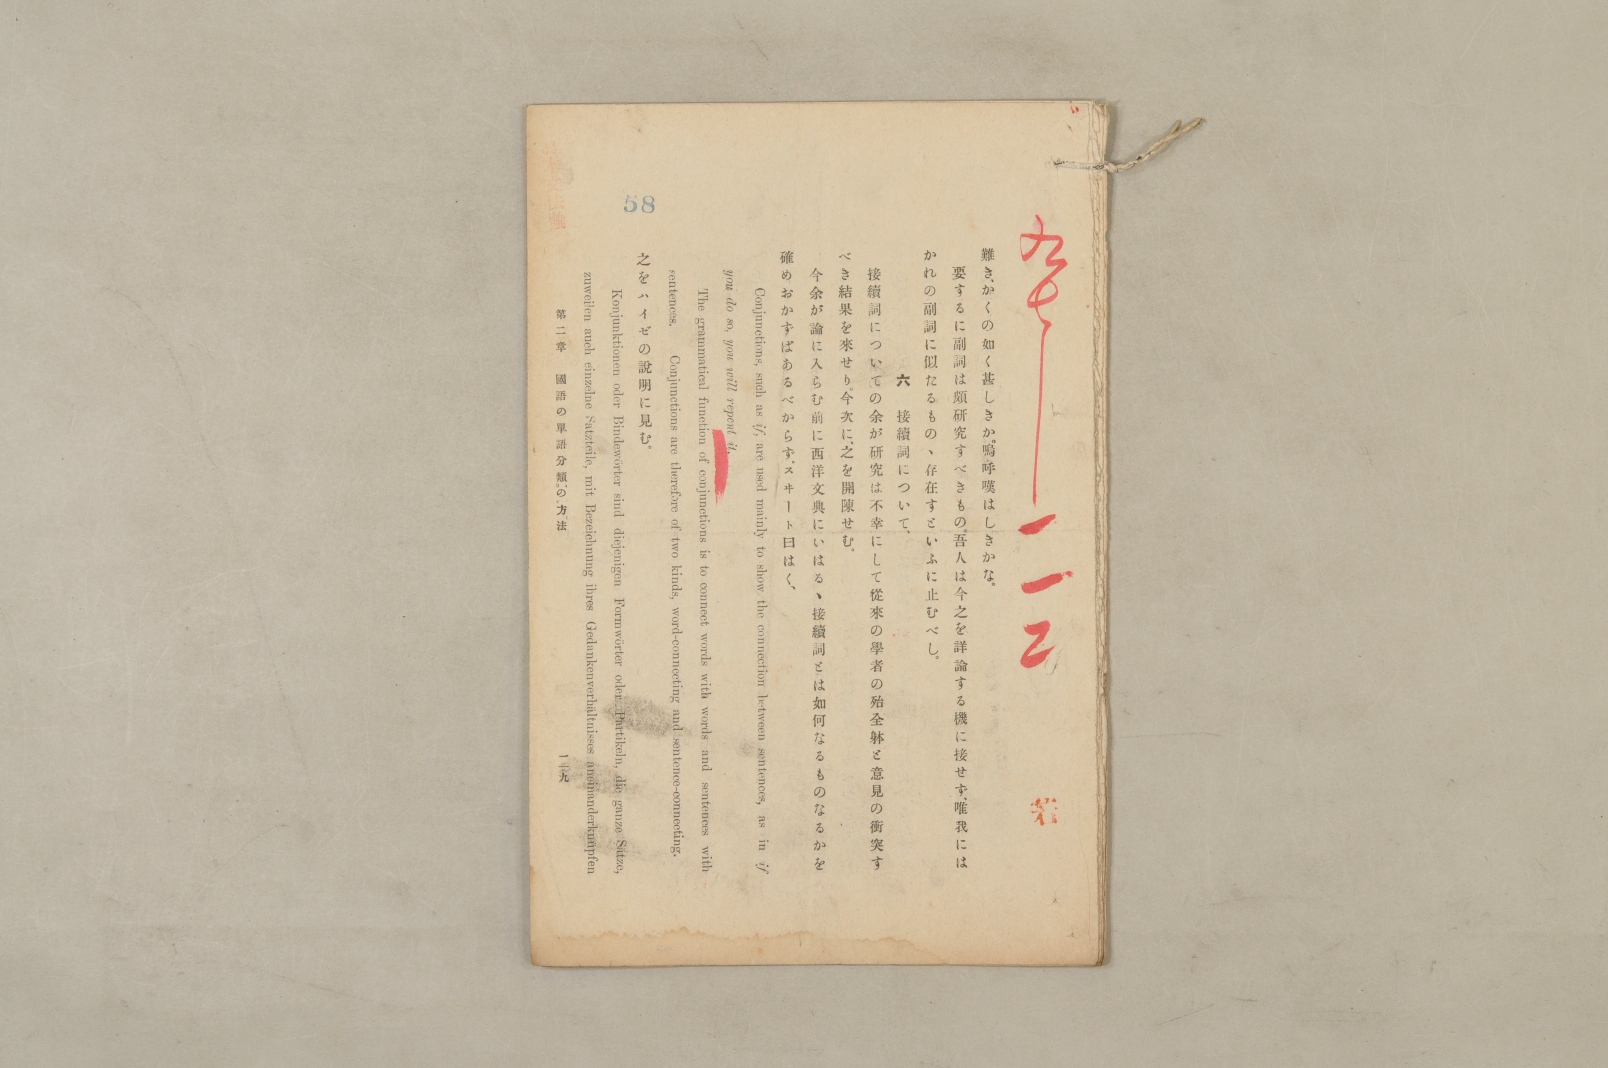 一一二
難き、かくの如く甚しきか。嗚呼嘆はしきかな。
要するに副詞は頗研究すべきもの。吾人は今之を詳論する機に接せず、唯我には
かれの副詞に似たるものヽ存在すといふに止むべし。
六 接續詞について、
接續詞についての余が研究は不幸にして從來の學者の殆全躰と意見の衝突す
べき結果を來せり。今次に、之を開陳せむ。
今余が論に入らむ前に西洋文典にいはるヽ接續詞とは如何なるものなるかを
確めおかずばあるべからず、スヰート曰はく、
Conjunctions, such as if, are used mainly to show the connection between sentences, as in if
you do so, you will repent it.
The grammatical function of conjunctions is to connect words with words and sentences with
sentences. Conjunctions are therefore of two kinds, word-connecting and sentence-connecting.
之をハイゼの說明に見む。
Konjunktionen oder Bindewörter sind diejenigen Formwörter oder Partikeln, die ganze Sätze,
zuweilen auch einzelne Satzteile, mit Bezeichnung ihres Gedankenverhältnisses aneinanderknüpfen
第二章 國語の單語分類の方法
一二九
58